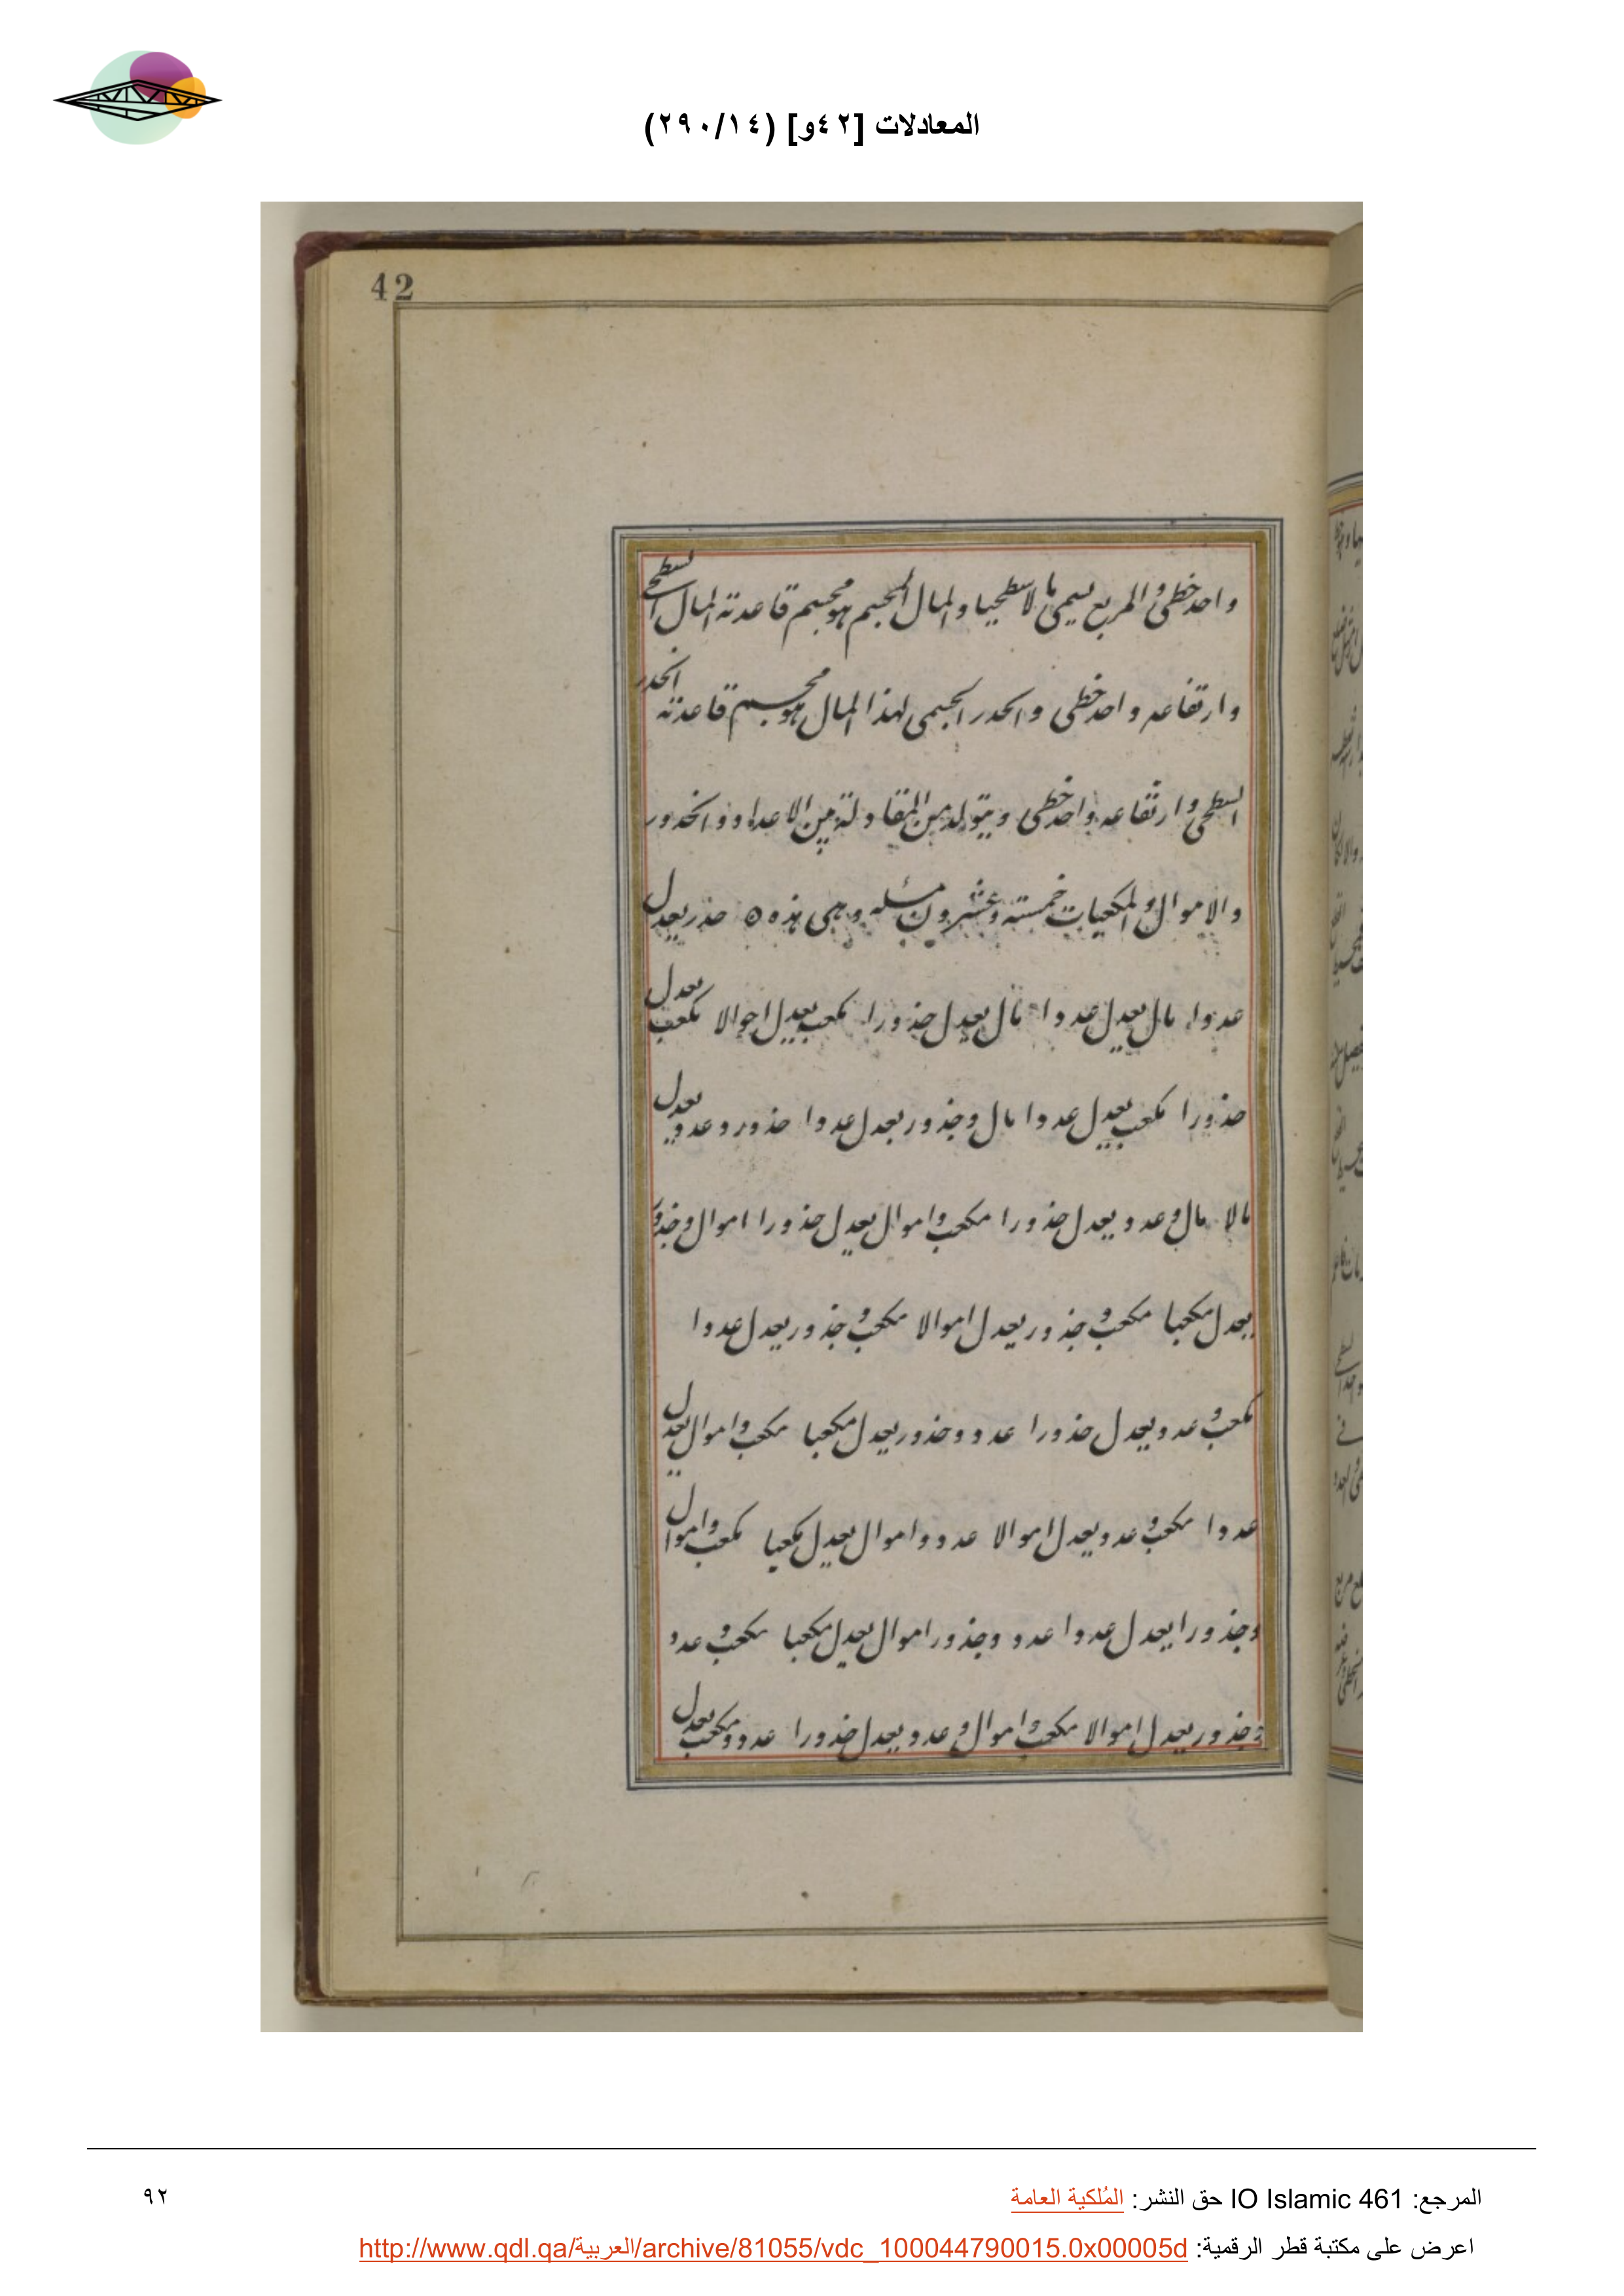 المعادلات [٤٢و] (٢٩٠/١٤)
42
واحد خطى والمربع يسمى مالا سطحيا والمال المجسم هو مجسم قاعدته المال السطحى
وارتفاعه واحد خطى والجذر الجسمى لهذا المال هو مجسم قاعدته الجذر
السطحى وارتفاعه واحد خطى ويتولد من المقاولة من الاعداد والجذور
والاموال والمكعبات خمسة وعشرون مسئلة وهى هذه ه جذر يعدل
عددا مال يعدل عددا مال يعدل جذورا مكعب يعدل اموالا مكعب يعدل
جذورا مكعب يعدل عددا مال وجذور يعدل عددا جذور وعدد يعدل
مالا مال وعدد يعدل جذورا مكعب واموال يعدل جذورا اموال وجذور
يعدل مكعبا مكعب وجذور يعدل اموالا مكعب وجذور يعدل عددا
مكعب وعدد يعدل جذورا عدد وجذور يعدل مكعبا مكعب واموال يعدل
عددا مكعب وعدد يعدل اموالا عدد واموال يعدل مكعبا مكعب واموال
وجذورا يعدل عددا عدد وجذور اموال يعدل مكعبا مكعب وعدد
وجذور يعدل اموالا مكعب واموال وعدد يعدل جذورا عدد ومكعب يعدل
المرجع: IO Islamic 461 حق النشر: المُلكية العامة
٩٢
اعرض على مكتبة قطر الرقمية: http://www.qdl.qa/العربية/archive/81055/vdc_100044790015.0x00005d